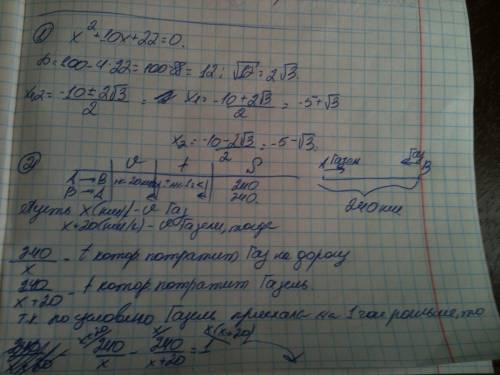 ① x²+10x+22=0.
D=100-4·22=100-88=12; √12=2√3
x₁,₂=(-10±2√3)/2 = x₁=(-10+2√3)/2=-5+√3
x₂=(-10-2√3)/2=-5-√3.
② v | t | S
A→B 240
B→A 240
A Газель Газ B
240км
Пусть x(км/ч)-v Газ
x+20(км/ч)-v Газели, тогда
240/x - t котор потратит Газ на дорогу
240/(x+20) - t котор потратит Газель.
т.к. по условию Газель приехала на 1 час раньше, то
240/x - 240/(x+20) = 1 x(x+20)